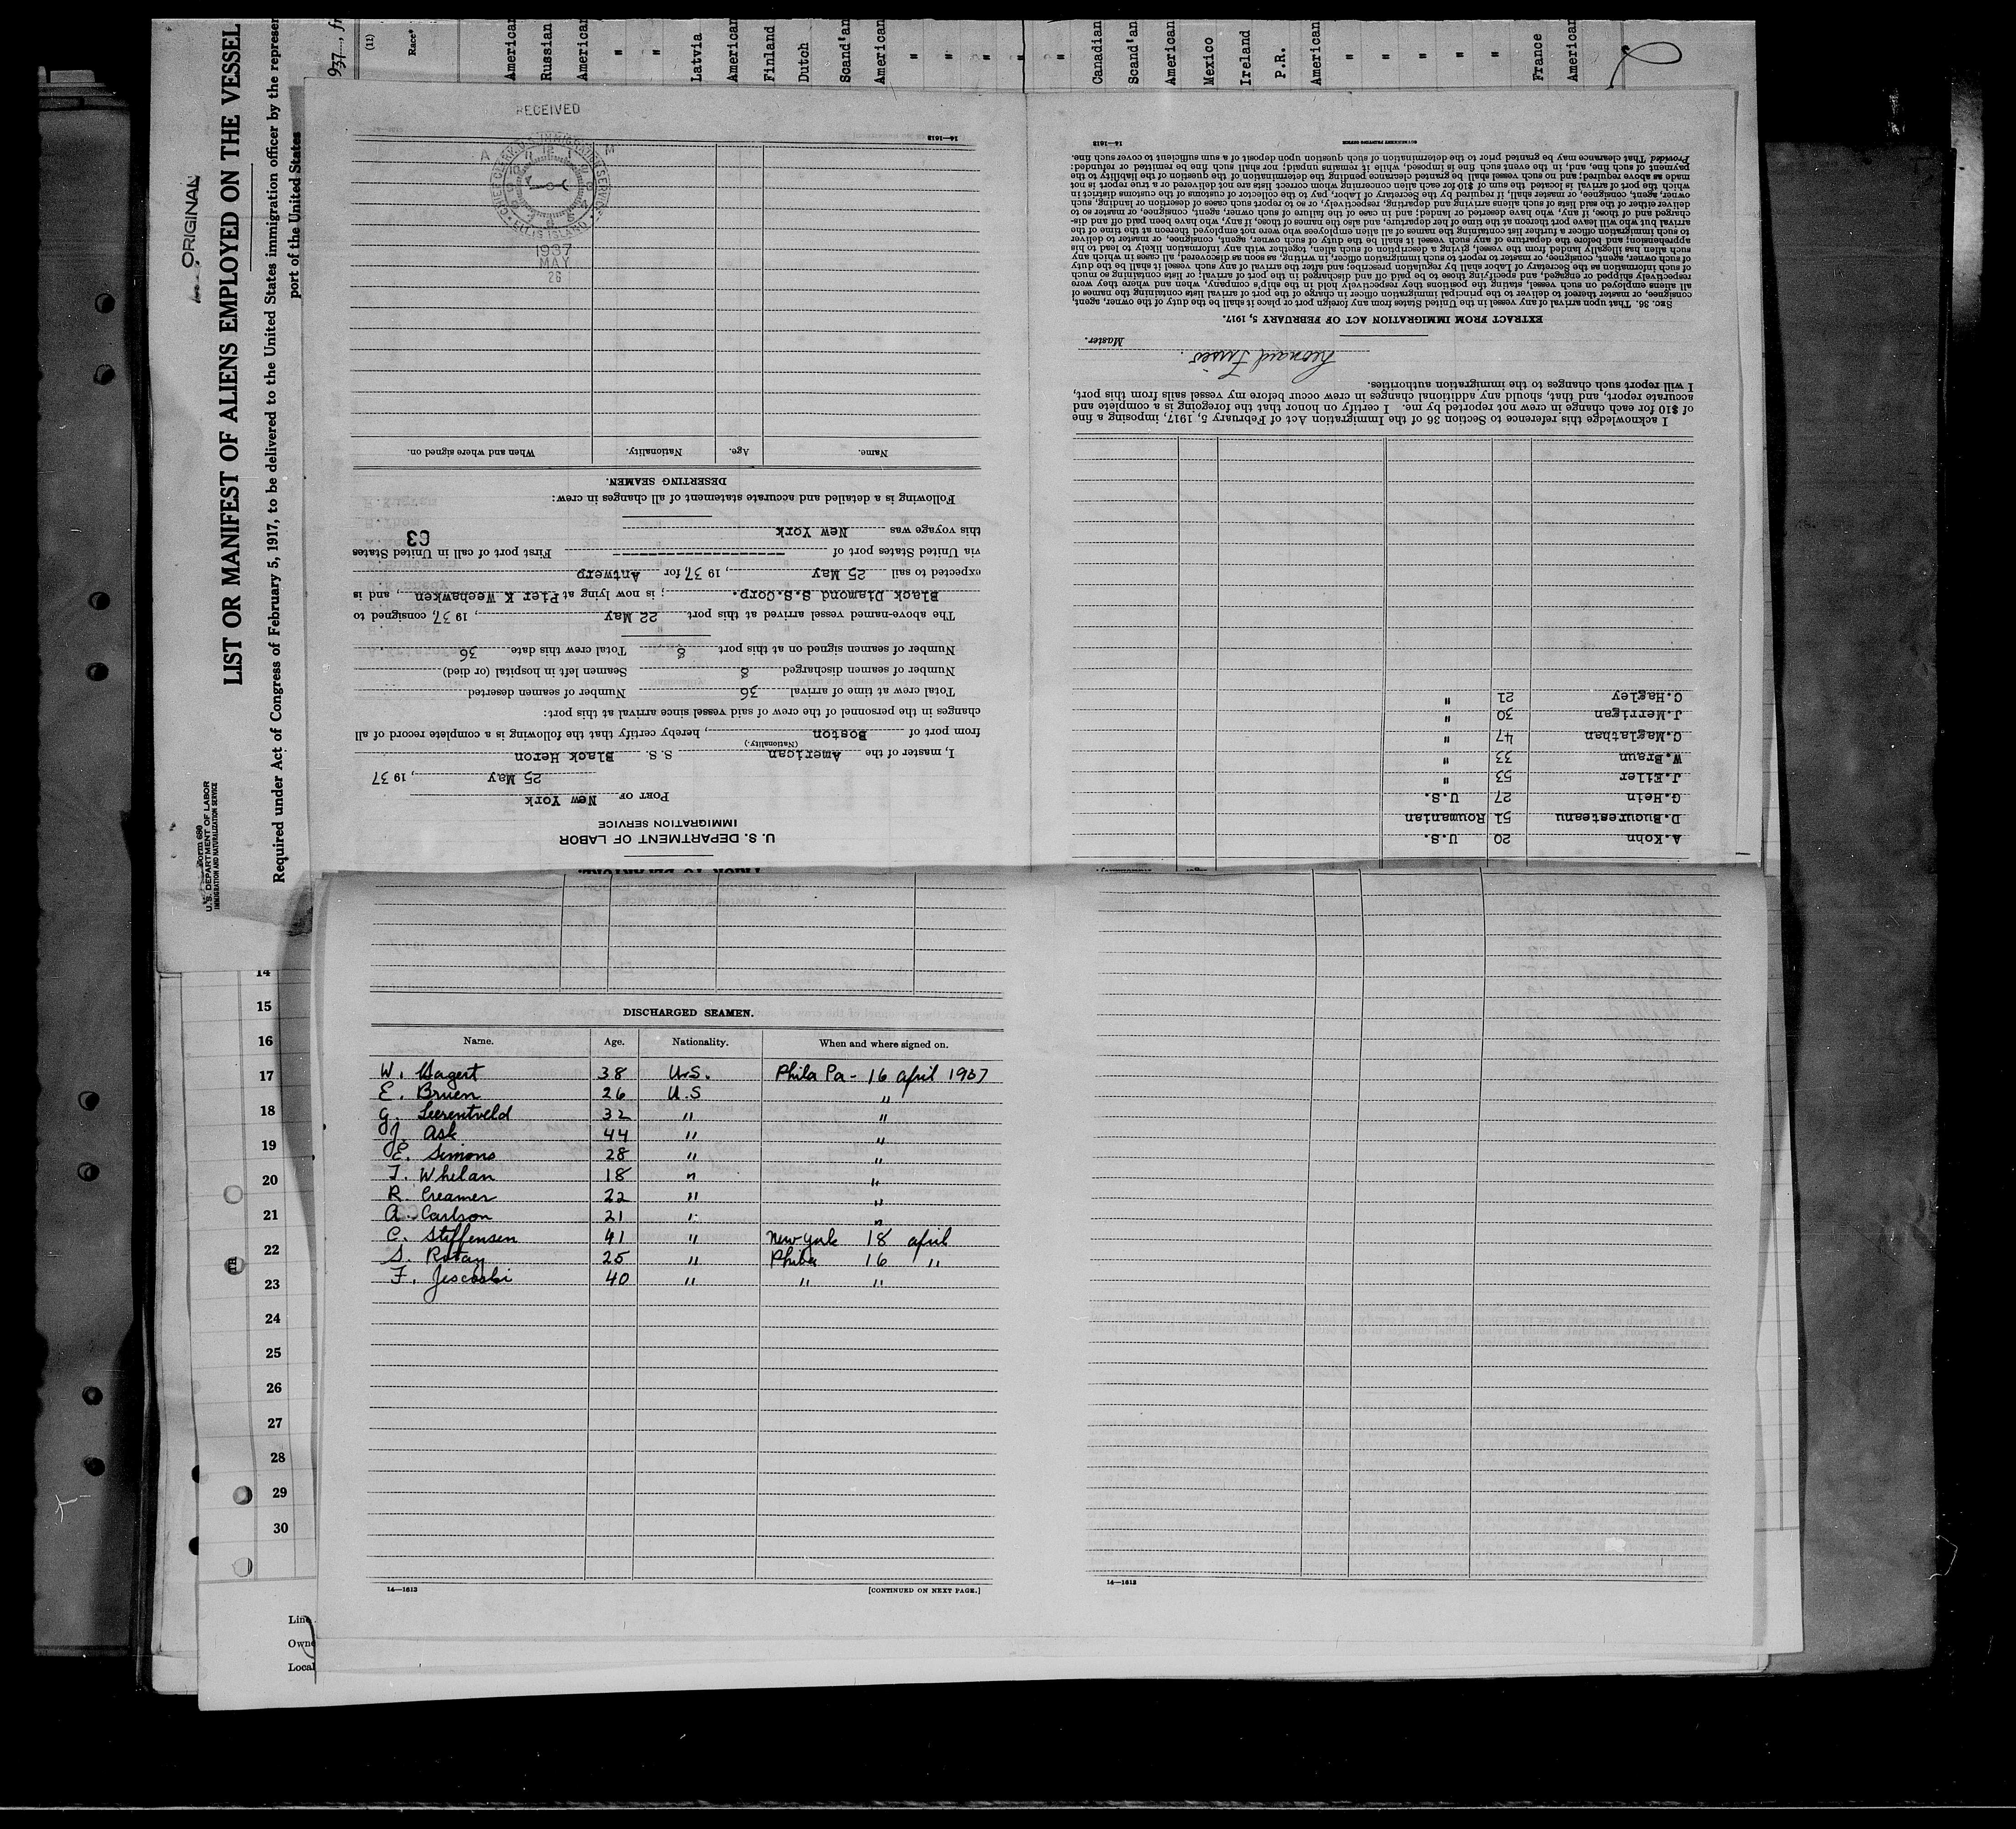 ORIGINAL
LIST OR MANIFEST OF ALIENS EMPLOYED ON THE VESSEL
Required under Act of Congress of February 5, 1917, to be delivered to the United States immigration officer by the represen
port of the United States
Form 680
U. S. DEPARTMENT OF LABOR
IMMIGRATION AND NATURALIZATION SERVICE
937, fr
(11)
Race*
American
Russian
American
"
"
Latvia
American
Finland
Dutch
Scand'an
American
"
"
"
"
"
Canadian
Scand'an
American
Mexico
Ireland
P.R.
American
"
"
"
"
"
France
American
RECEIVED
A M
CHIEF CLERK U.S. IMMIGRATION SERVICE
ELLIS ISLAND
1937
MAY
26
U. S. DEPARTMENT OF LABOR
IMMIGRATION SERVICE
PORT OF New York
25 May, 1937
I, master of the American S. S. Black Heron
(Nationality.)
from port of Boston, hereby certify that the following is a complete record of all
changes in the personnel of the crew of said vessel since arrival at this port:
Total crew at time of arrival 36 Number of seamen deserted
Number of seamen discharged 8 Seamen left in hospital (or died)
Number of seamen signed on at this port 8 Total crew this date 36
The above-named vessel arrived at this port 22 May, 1937, consigned to
Black Diamond S.S.Corp.; is now lying at Pier K Weehawken, and is
expected to sail 25 May, 1937, for Antwerp
via United States port of ---------------------- First port of call in United States
this voyage was New York C3
Following is a detailed and accurate statement of all changes in crew:
DESERTING SEAMEN.
Name. Age. Nationality. When and where signed on.
14—1613
A.Kohn 20 U.S.
D.Bucuresteanu 51 Roumanian
G.Hein 27 U.S.
J.Eiler 53 "
W.Braun 33 "
C.Maglathan 47 "
J.Merrigan 30 "
C.Hagley 21 "
I acknowledge this reference to Section 36 of the Immigration Act of February 5, 1917, imposing a fine
of $10 for each change in crew not reported by me. I certify on honor that the foregoing is a complete and
accurate report, and that, should any additional changes in crew occur before my vessel sails from this port,
I will report such changes to the immigration authorities.
Master.
EXTRACT FROM IMMIGRATION ACT OF FEBRUARY 5, 1917.
SEC. 36. That upon arrival of any vessel in the United States from any foreign port or place it shall be the duty of the owner, agent,
consignee, or master thereof to deliver to the principal immigration officer in charge of the port of arrival lists containing the names of
all aliens employed on such vessel, stating the positions they respectively hold in the ship's company, when and where they were
respectively shipped or engaged, and specifying those to be paid off and discharged in the port of arrival; or lists containing so much
of such information as the Secretary of Labor shall by regulation prescribe; and after the arrival of any such vessel it shall be the duty
of such owner, agent, consignee, or master to report to such immigration officer, in writing, as soon as discovered, all cases in which any
such alien has illegally landed from the vessel, giving a description of such alien, together with any information likely to lead to his
apprehension; and before the departure of any such vessel it shall be the duty of such owner, agent, consignee, or master to deliver
to such immigration officer a further list containing the names of all alien employees who were not employed thereon at the time of the
arrival but who will leave port thereon at the time of her departure, and also the names of those, if any, who have been paid off and dis-
charged and of those, if any, who have deserted or landed; and in case of the failure of such owner, agent, consignee, or master so to
deliver either of the said lists of such aliens arriving and departing, respectively, or so to report such cases of desertion or landing, such
owner, agent, consignee, or master shall, if required by the Secretary of Labor, pay to the collector of customs of the customs district in
which the port of arrival is located the sum of $10 for each alien concerning whom correct lists are not delivered or a true report is not
made as above required; and no such vessel shall be granted clearance pending the determination of the question of the liability to the
payment of such fine, and, in the event such fine is imposed, while it remains unpaid; nor shall such fine be remitted or refunded:
Provided That clearance may be granted prior to the determination of such question upon deposit of a sum sufficient to cover such fine.
14—1613
GOVERNMENT PRINTING OFFICE
DISCHARGED SEAMEN.
Name. Age. Nationality. When and where signed on.
W. 38 U.S. Phila Pa - 16 april 1937
E. Bruen 26 U.S "
G. Leerentveld 32 " "
J. Ask 44 " "
E. Simons 28 " "
T. Whelan 18 " "
R. Creamer 22 " "
A. Carlson 21 " "
C. Steffensen 41 " New York 18 april
S. Rotay 25 " Phila 16 "
F. 40 " " "
14—1613 [CONTINUED ON NEXT PAGE.]
14—1613
14
15
16
17
18
19
20
21
22
23
24
25
26
27
28
29
30
Line
Owne
Local